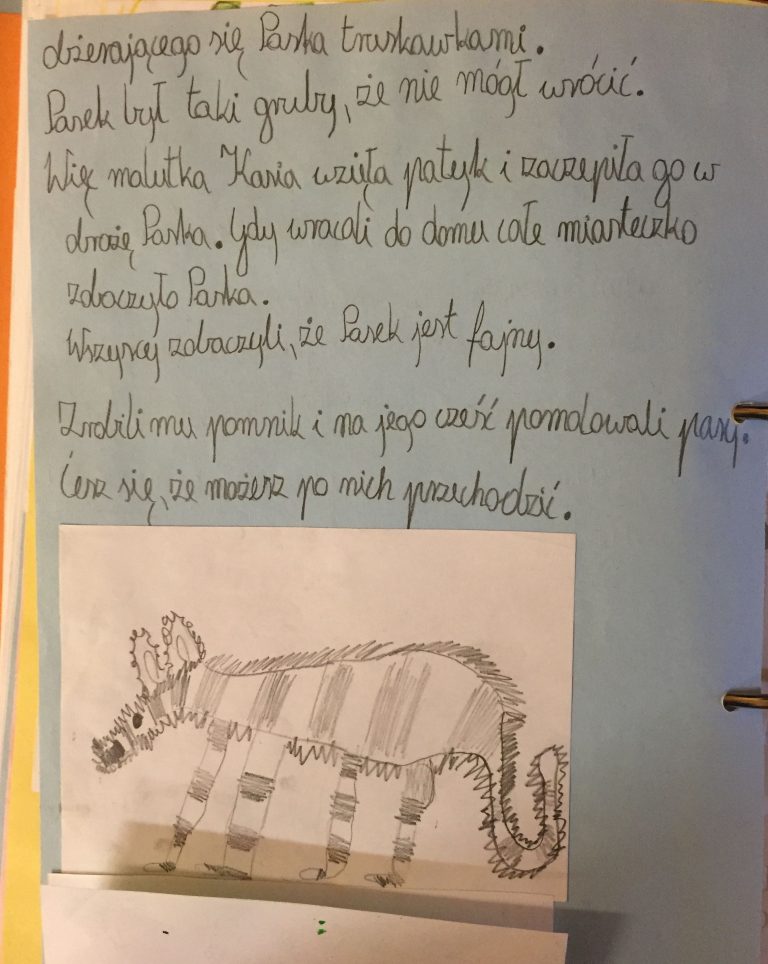 dżerającego się Paska truskawkami.
Pasek był taki gruby, że nie mógł wrócić.
Więc malutka Kasia wzięła patyk i zaczepiła go w
drożę Paska. Gdy wracali do domu całe miasteczko
zobaczyło Paska.
Wszyscy zobaczyli, że Pasek jest fajny.
Zrobili mu pomnik i na jego cześć pomalowali pasy.
Ciesz się, że możesz po nich przechodzić.